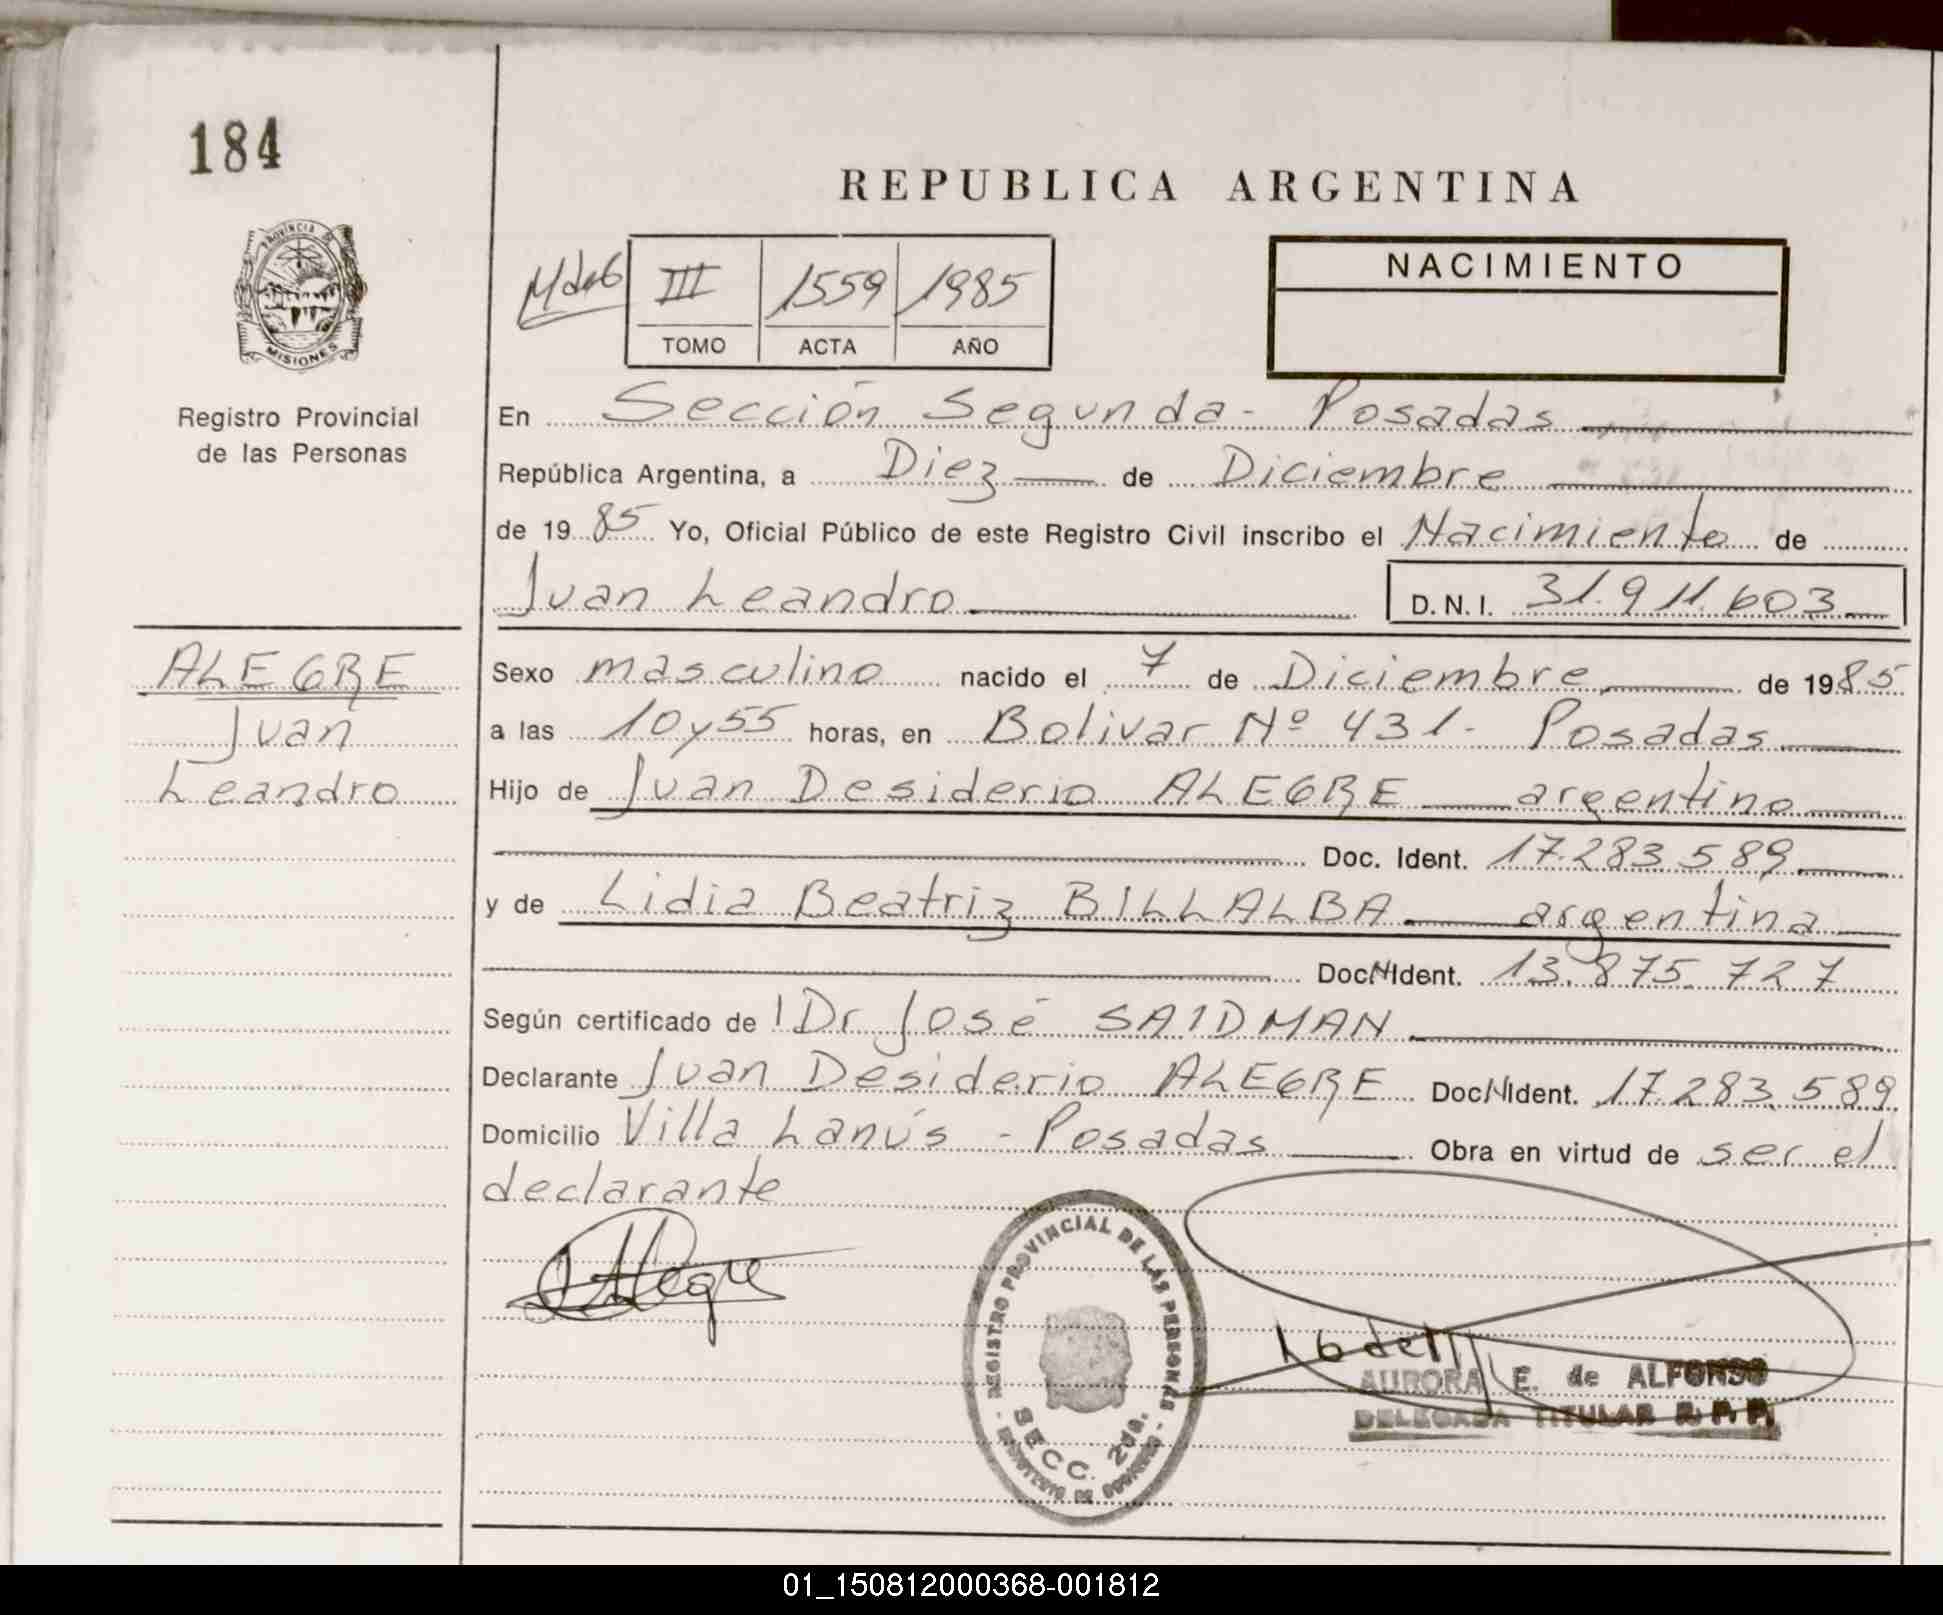 184
REPUBLICA ARGENTINA
PROVINCIA DE
MISIONES
Registro Provincial
de las Personas
III 1559 1985
TOMO ACTA AÑO
NACIMIENTO
En Sección Segunda - Posadas
República Argentina, a Diez de Diciembre
de 1985 Yo, Oficial Público de este Registro Civil inscribo el Nacimiento de
Juan Leandro D.N.I. 31.911.603
ALEGRE
Juan
Leandro
Sexo masculino nacido el 7 de Diciembre de 1985
a las 10y55 horas, en Bolivar Nº 431. Posadas
Hijo de Juan Desiderio ALEGRE argentino
Doc. Ident. 17.283.589
y de Lidia Beatriz BILLALBA argentina
Doc. N Ident. 13.875.727
Según certificado de Dr José SAIDMAN
Declarante Juan Desiderio ALEGRE Doc. N Ident. 17.283.589
Domicilio Villa Lanús - Posadas Obra en virtud de ser el
declarante
Alegre
REGISTRO PROVINCIAL DE LAS PERSONAS
SECC. 2da.
AURORA E. de ALFONSO
DELEGADA TITULAR R. P. P.
01_150812000368-001812